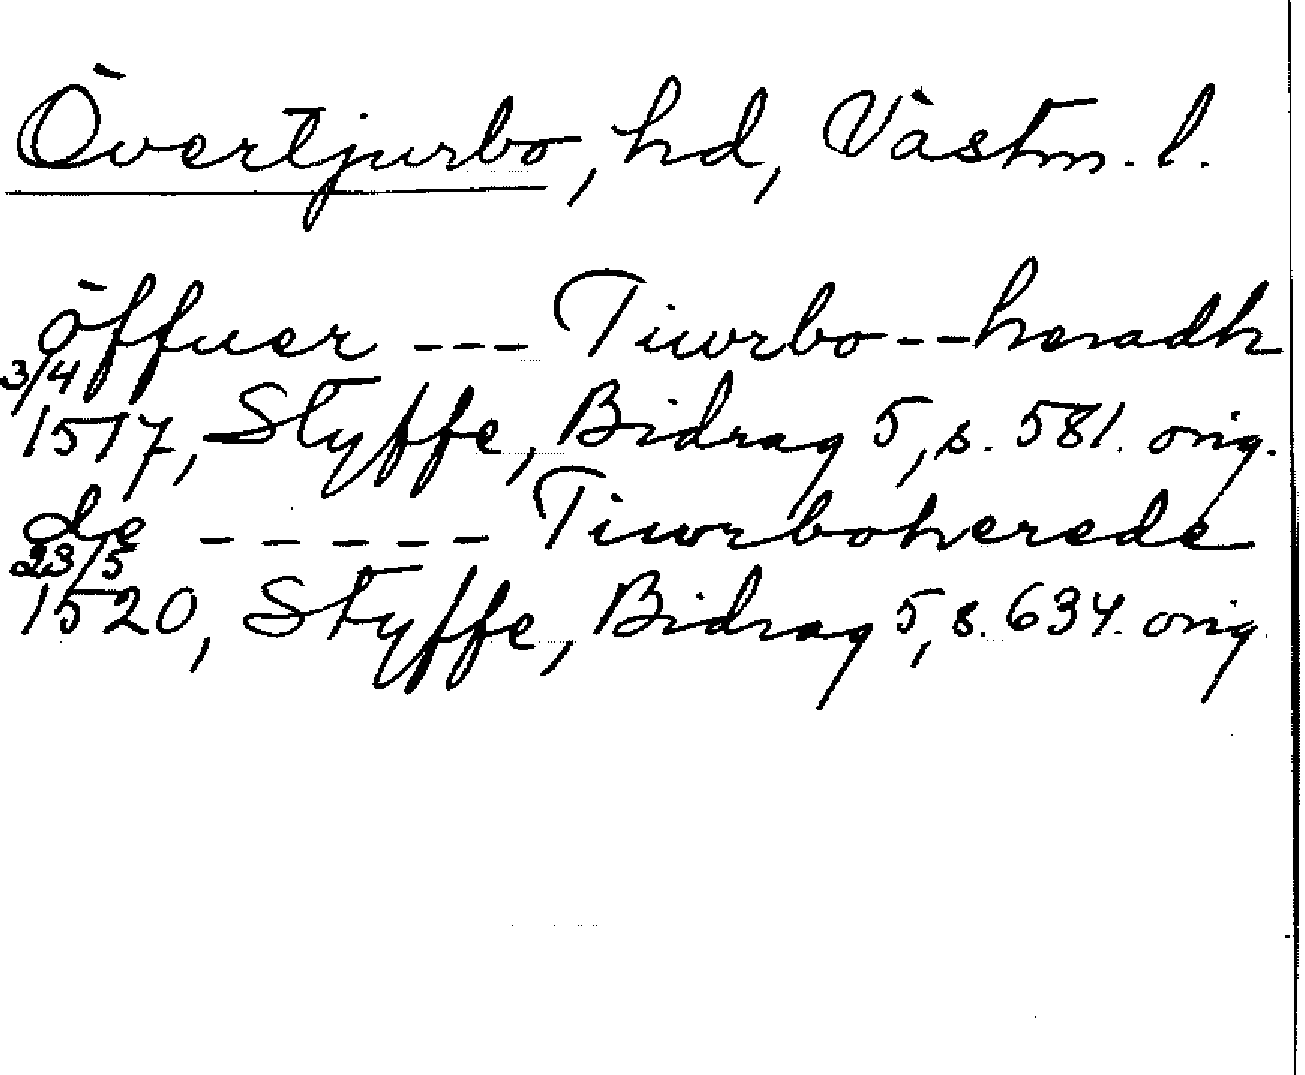 Övertjurbo, hd, Västm. l.
öffuer --- Tiwrbo--heradh
3/4
1517, Styffe, Bidrag 5, s. 581. orig.
de ----- Tiwrboherede
23/5
1520, Styffe, Bidrag 5, s. 634. orig.